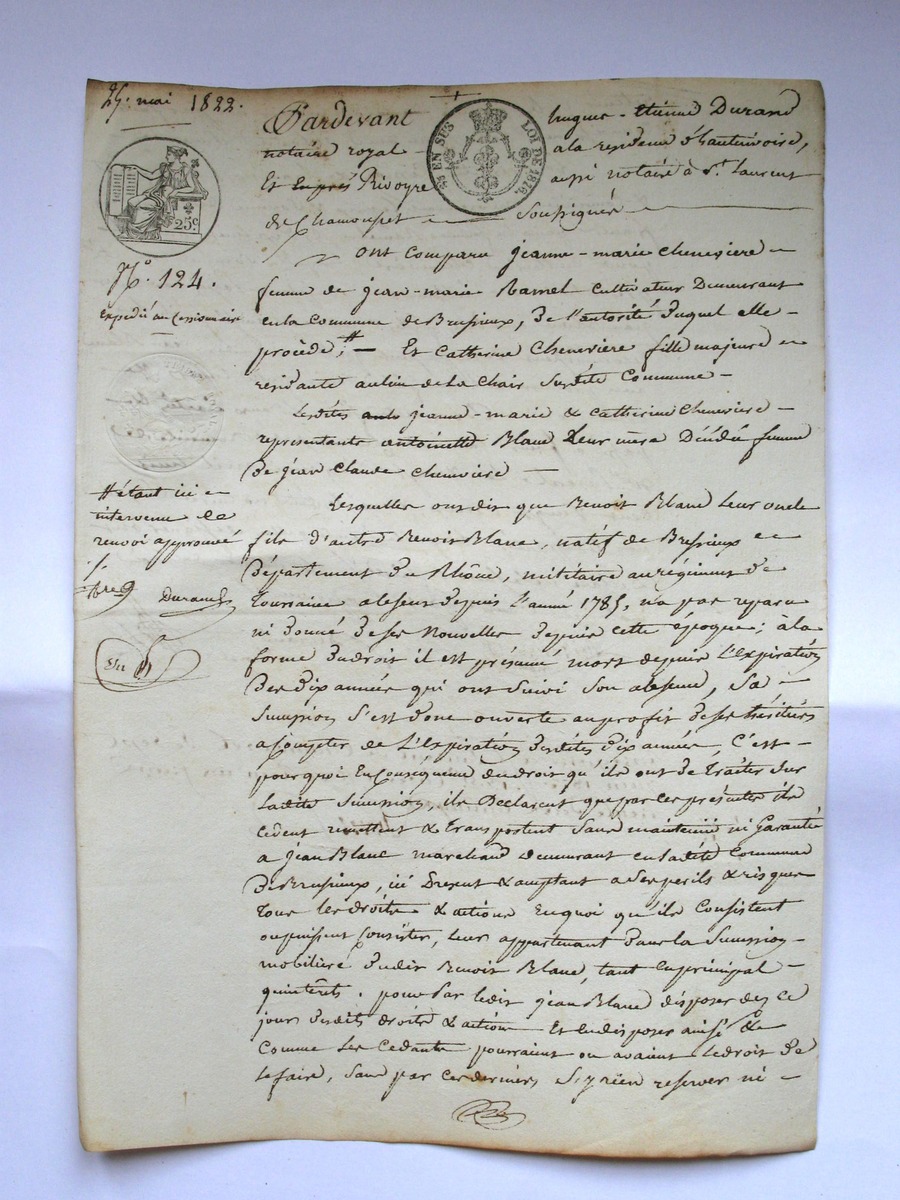 25. mai 1822.
Pardevant hugues-étienne Durand
EN SUS
LOI DE 1816.
notaire royal a la residence d'hauterivoire,
Et Rivoyre aussi notaire à St. Laurent
de Chamousset Soussignés
25c
N.º 124.
Expedié au Cessionnaire
ont comparu jeanne-marie Cheneviere
femme de jean-marie Ramel Cultivateur Demeurant
en la Commune de Brussieux, de l'autorité duquel elle
procède; # Et Catherine Cheneviere fille majeure
residante au lieu de la Chair Susdite Commune
Lesdites jeanne-marie & Catherine Cheneviere
representants antoinette Blanc Leur mere Décédée femme
de jean Claude Cheneviere
Lesquelles ont dit que Benoit Blanc Leur oncle
fils d'autre Benoit Blanc, natif de Brussieux
Département du Rhône, militaire au régiment de
Touraine absent depuis L'année 1785, n'a pas reparu
ni donné de ses Nouvelles depuis cette époque; à la
forme du droit il est présumé mort depuis L'Expiration
Des dix années qui ont Suivi Son absence, Sa
Succession S'est donc ouverte au profit de ses héritiers
a Compter de L'Expiration desdites dix années, C'est
pourquoi En Conséquence du droit qu'ils ont de Traiter Sur
Ladite Succession, ils Déclarent que par ces présentes ils
Cèdent remettent & transportent Sans maintenue ni Garantie
a jean Blanc marchand demeurant en Ladite Commune
de Brussieux, ici present & acceptant a Ses perils & risques
Tous les droits & actions En quoi qu'ils Consistent
ou puissent Consister, Leur appartenant dans la Succession
mobilière dudit Benoit Blanc, tant en principal
qu'intérêts. pour par ledit jean Blanc disposer dez ce
jour desdits droits & actions Et En disposer ainsi &
Comme Les Cedants pourraient ou avaient Le droit de
Le faire, Sans par ces derniers S'y rien reserver ni
# étant ici
intervenu
renvoi approuvé
Durand